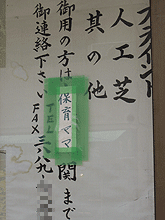 人工芝
其の他
御用の方は保育ママ関まで
御連絡下さい TEL
FAX 三八九